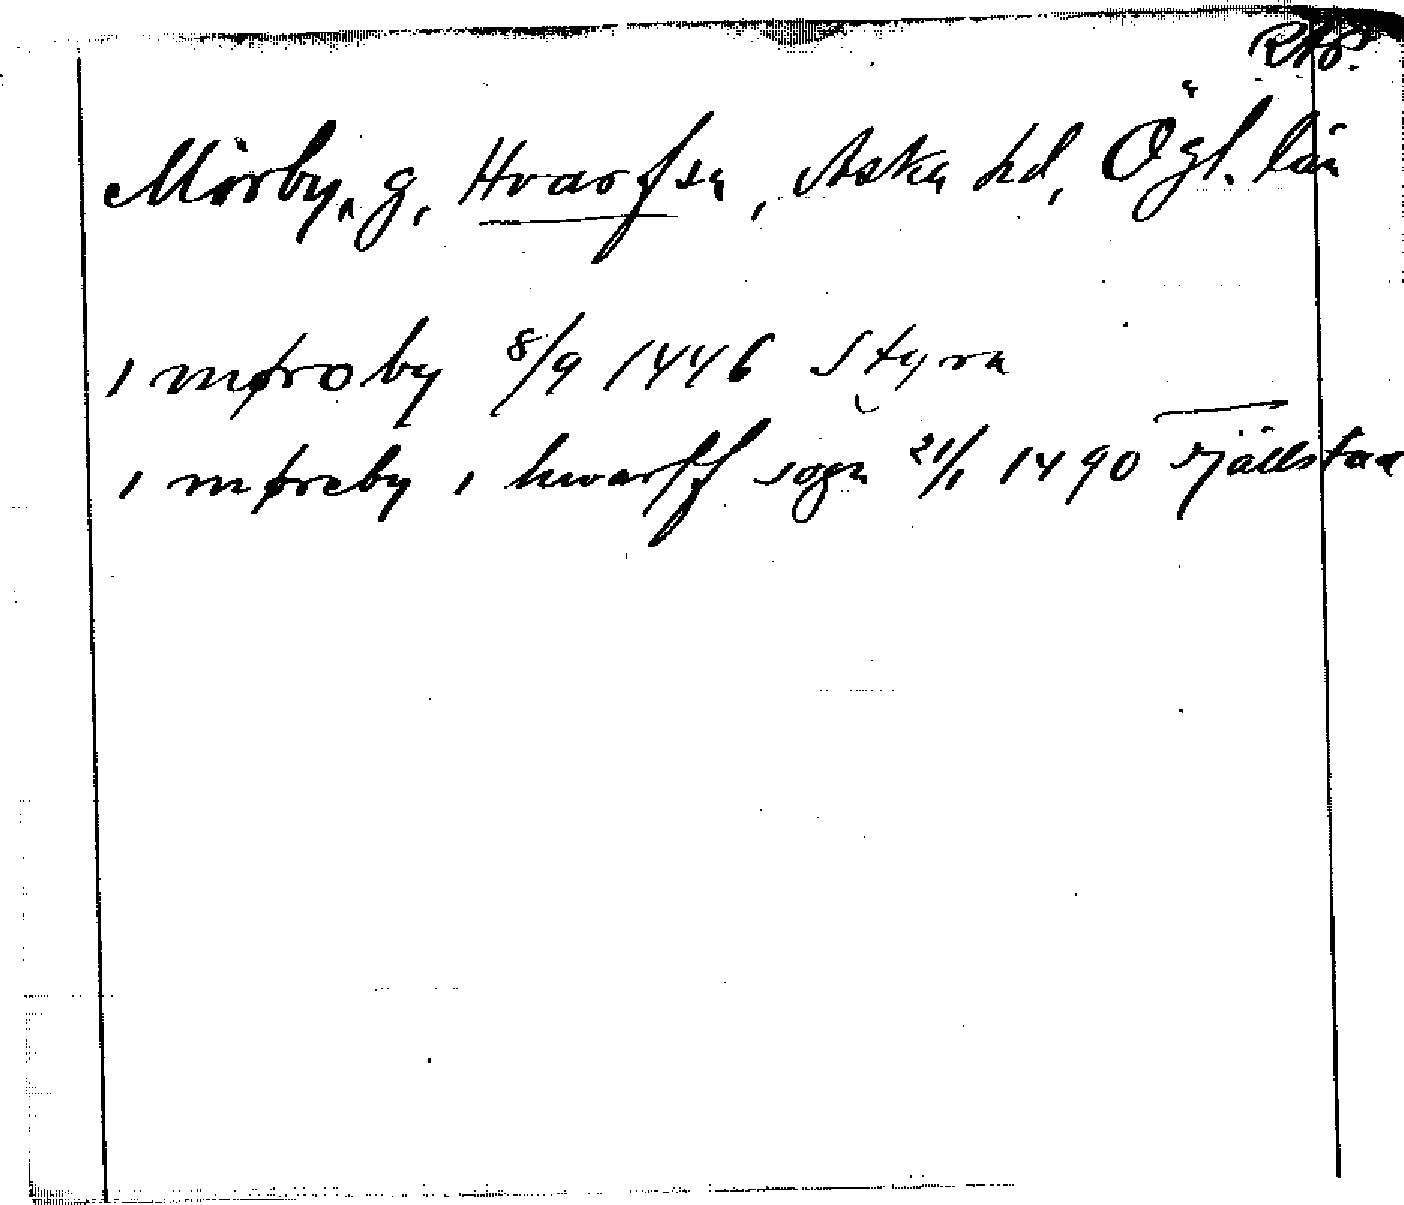 RAP.
Mörby, g, Hvarfsn, Aska hd, Ögl. län
i møroby 8/9 1446 Styra
i møreby i hwarff sogn 21/1 1490 Fjällstad